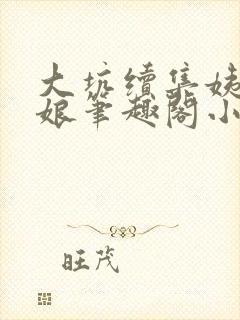 大坑續集姨
娘筆趣閣小
旺茂